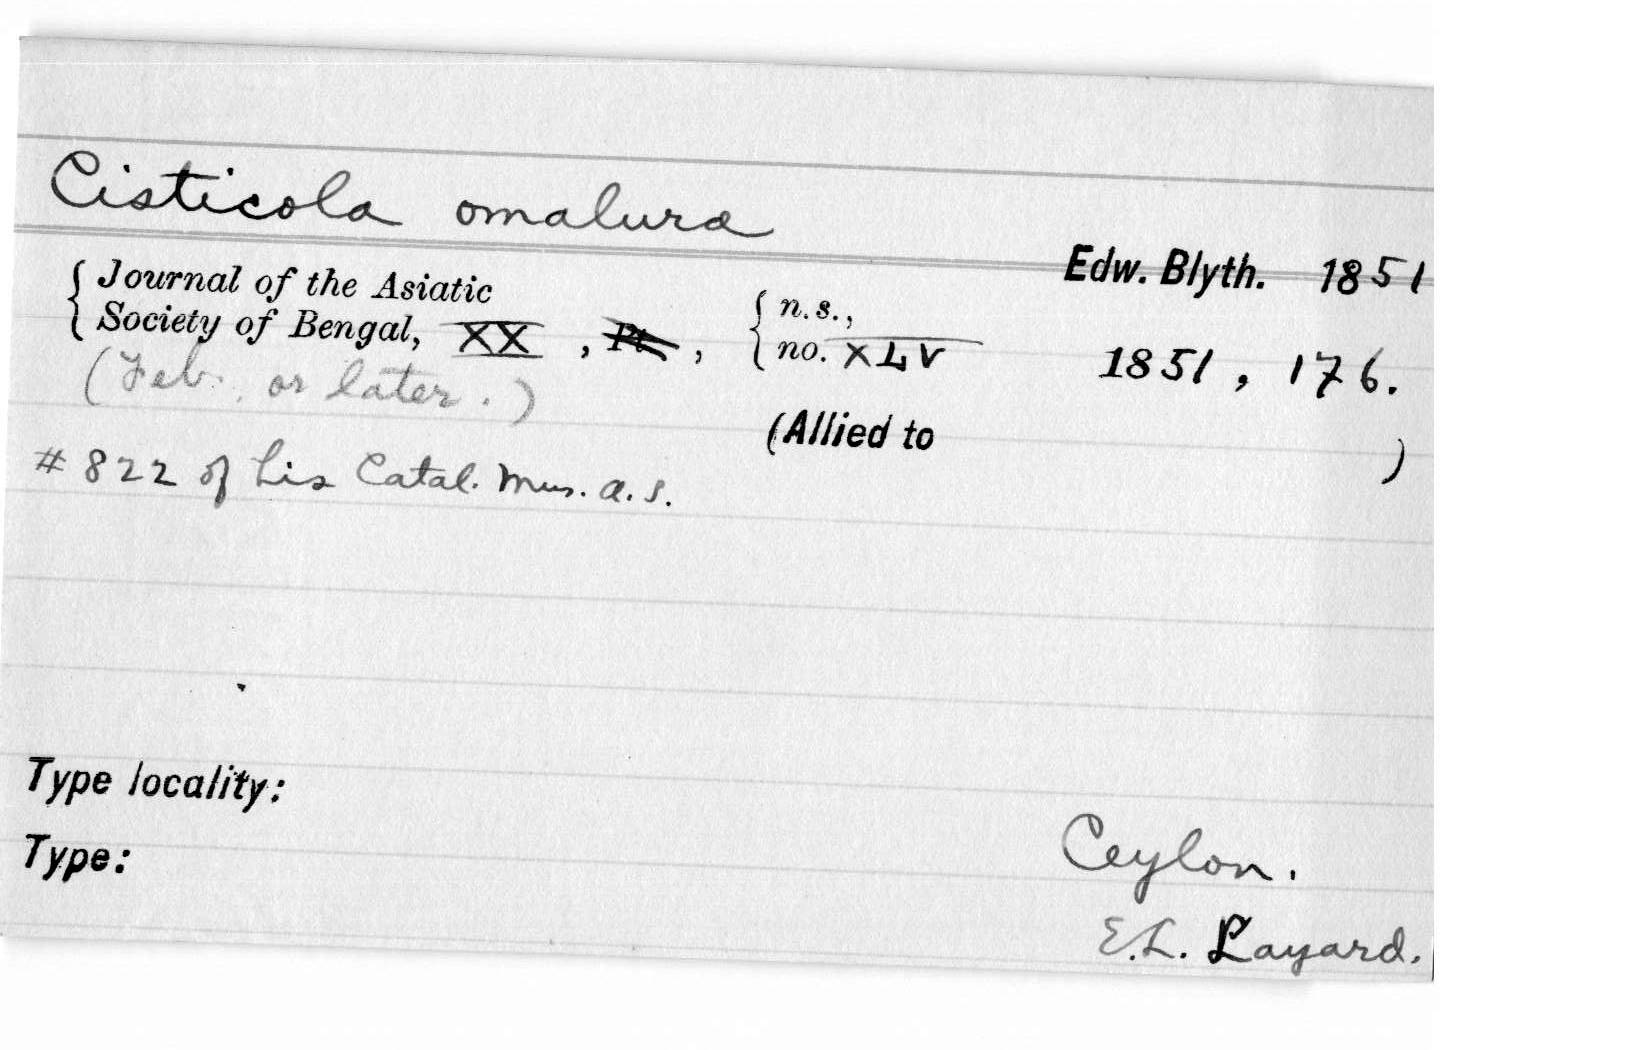 Cisticola omalura
Edw. Blyth. 1851
{ Journal of the Asiatic
{ Society of Bengal, XX , Pt. , { n.s., no. XLV 1851, 176.
(Feb. or later.)
(Allied to )
# 822 of his Catal. Mus. A.S.
Type locality:
Ceylon.
Type:
E.L. Layard.